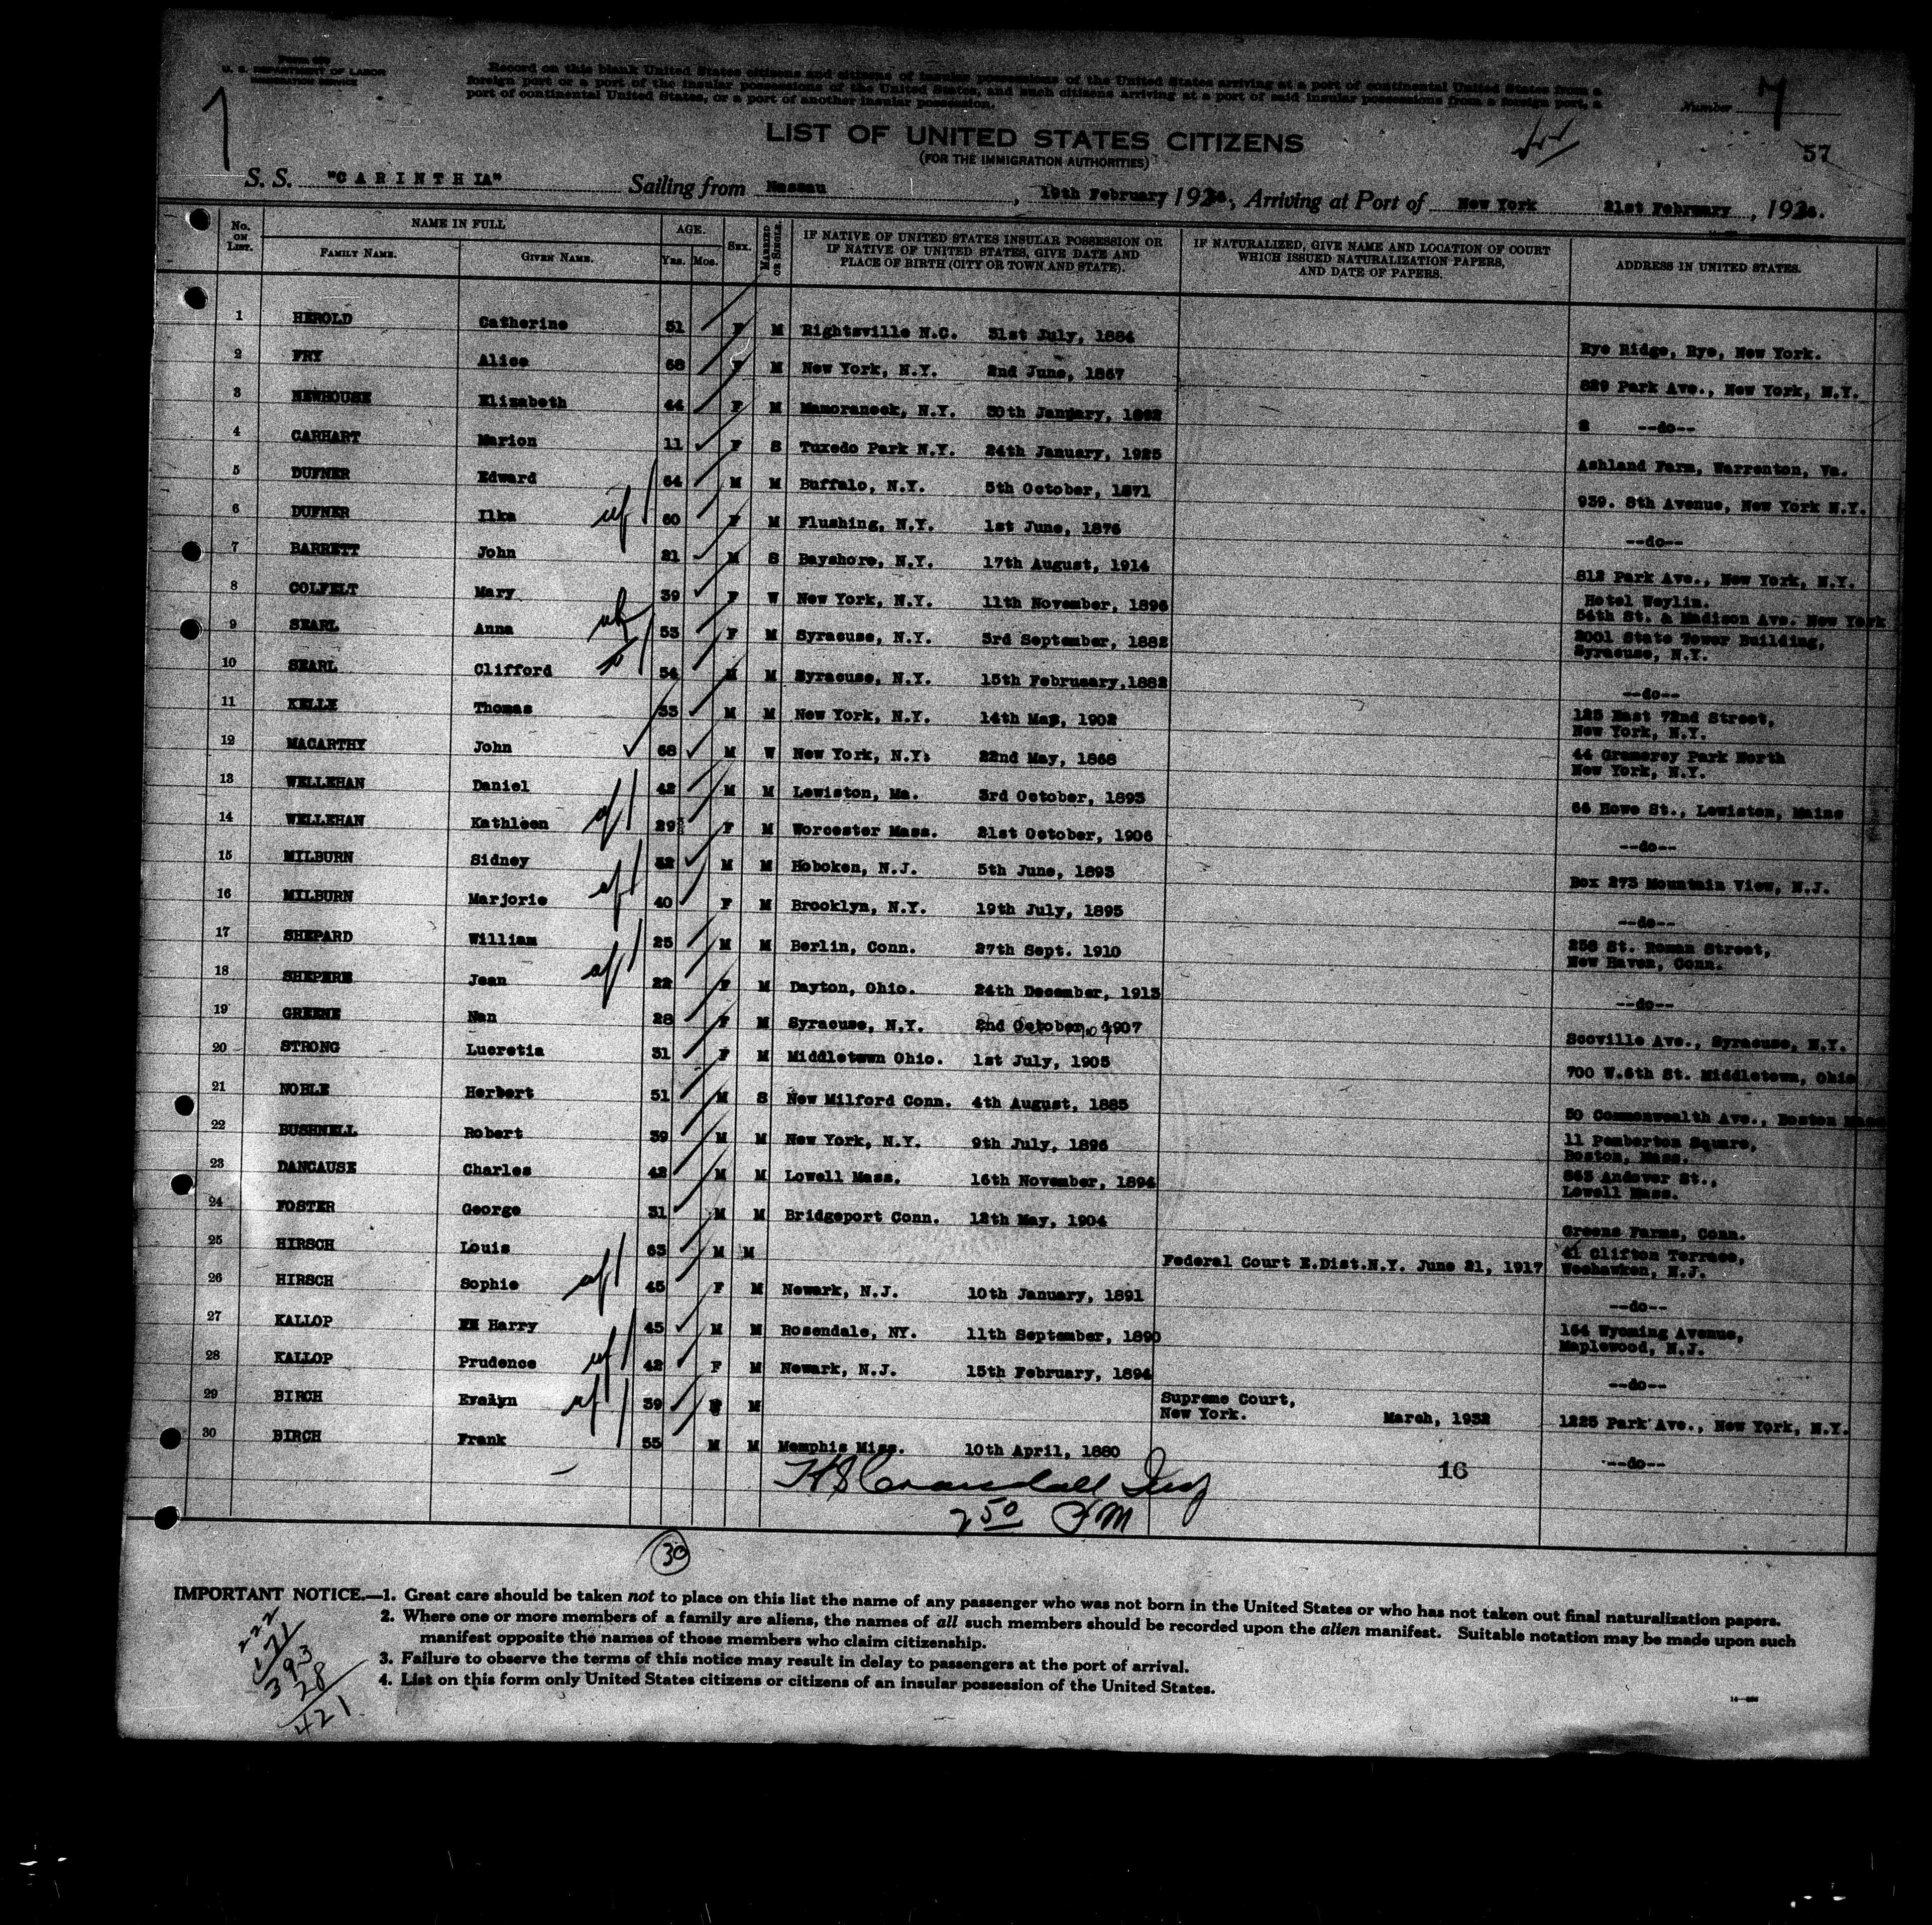 U. S. DEPARTMENT OF LABOR
IMMIGRATION SERVICE
Record on this blank United States citizens and citizens of insular possessions of the United States arriving at a port of continental United States from a
foreign port or a port of the insular possessions of the United States, and such citizens arriving at a port of said insular possessions from a foreign port, a
port of continental United States, or a port of another insular possession.
Number
57
LIST OF UNITED STATES CITIZENS
(FOR THE IMMIGRATION AUTHORITIES)
S. S. "C A R I N T H IA" Sailing from Nassau, 19th February 193 , Arriving at Port of New York 21st February , 193 .
No. ON LIST. NAME IN FULL FAMILY NAME. GIVEN NAME. AGE. Yrs. Mos. SEX. MARRIED OR SINGLE. IF NATIVE OF UNITED STATES INSULAR POSSESSION OR IF NATIVE OF UNITED STATES, GIVE DATE AND PLACE OF BIRTH (CITY OR TOWN AND STATE). IF NATURALIZED, GIVE NAME AND LOCATION OF COURT WHICH ISSUED NATURALIZATION PAPERS, AND DATE OF PAPERS. ADDRESS IN UNITED STATES.
1 HEROLD Catherine 51 F M Rightsville N.C. 31st July, 1884 Rye Ridge, Rye, New York.
2 FRY Alice 68 F M New York, N.Y. 2nd June, 1867 829 Park Ave., New York, N.Y.
3 NEWHOUSE Elizabeth 44 F M Mamoraneck, N.Y. 30th January, 1892 --do--
4 CARHART Marion 11 F S Tuxedo Park N.Y. 24th January, 1925 Ashland Farm, Warrenton, Va.
5 DUFNER Edward 64 M M Buffalo, N.Y. 5th October, 1871 939. 8th Avenue, New York N.Y.
6 DUFNER Ilka 60 F M Flushing, N.Y. 1st June, 1876 --do--
7 BARRETT John 21 M S Bayshore, N.Y. 17th August, 1914 812 Park Ave., New York, N.Y.
8 COLFELT Mary 39 F W New York, N.Y. 11th November, 1896 Hotel Weylin. 54th St. & Madison Ave. New York
9 SEARL Anna 53 F M Syracuse, N.Y. 3rd September, 1882 2001 State Tower Building, Syracuse, N.Y.
10 SEARL Clifford 54 M M Syracuse, N.Y. 15th February,1882 --do--
11 KELLY Thomas 33 M M New York, N.Y. 14th May, 1902 125 East 72nd Street, New York, N.Y.
12 MACARTHY John 68 M W New York, N.Y. 22nd May, 1868 44 Gramercy Park North New York, N.Y.
13 WELLEHAN Daniel 42 M M Lewiston, Ma. 3rd October, 1893 66 Howe St., Lewiston, Maine
14 WELLEHAN Kathleen 29 F M Worcester Mass. 21st October, 1906 --do--
15 MILBURN Sidney 42 M M Hoboken, N.J. 5th June, 1893 Box 273 Mountain View, N.J.
16 MILBURN Marjorie 40 F M Brooklyn, N.Y. 19th July, 1895 --do--
17 SHEPARD William 25 M M Berlin, Conn. 27th Sept. 1910 258 St. Ronan Street, New Haven, Conn.
18 Jean 22 F M Dayton, Ohio. 24th December, 1913 --do--
19 GREENE Nan 28 F M Syracuse, N.Y. 2nd October, 1907 Scoville Ave., Syracuse, N.Y.
20 STRONG Lucretia 31 F M Middletown Ohio. 1st July, 1905 700 W.6th St. Middletown, Ohio
21 NOBLE Herbert 51 M S New Milford Conn. 4th August, 1885 50 Commonwealth Ave., Boston Mass
22 BUSHNELL Robert 39 M M New York, N.Y. 9th July, 1896 11 Pemberton Square, Boston, Mass.
23 DANCAUSE Charles 42 M M Lowell Mass. 16th November, 1894 863 Andover St., Lowell Mass.
24 FOSTER George 31 M M Bridgeport Conn. 12th May, 1904 Greens Farms, Conn.
25 HIRSCH Louis 63 M M Federal Court E.Dist.N.Y. June 21, 1917 41 Clifton Terrace, Weehawken, N.J.
26 HIRSCH Sophie 45 F M Newark, N.J. 10th January, 1891 --do--
27 KALLOP Harry 45 M M Rosendale, NY. 11th September, 1890 164 Wyoming Avenue, Maplewood, N.J.
28 KALLOP Prudence 42 F M Newark, N.J. 15th February, 1894 --do--
29 BIRCH Evelyn 39 F M Supreme Court, New York. March, 1932 1225 Park Ave., New York, N.Y.
30 BIRCH Frank 55 M M Memphis Miss. 10th April, 1880 --do--
16
H S Crandall Insp
2 50 PM
30
IMPORTANT NOTICE.—1. Great care should be taken not to place on this list the name of any passenger who was not born in the United States or who has not taken out final naturalization papers.
2. Where one or more members of a family are aliens, the names of all such members should be recorded upon the alien manifest. Suitable notation may be made upon such
manifest opposite the names of those members who claim citizenship.
3. Failure to observe the terms of this notice may result in delay to passengers at the port of arrival.
4. List on this form only United States citizens or citizens of an insular possession of the United States.
222
171
393
28
421